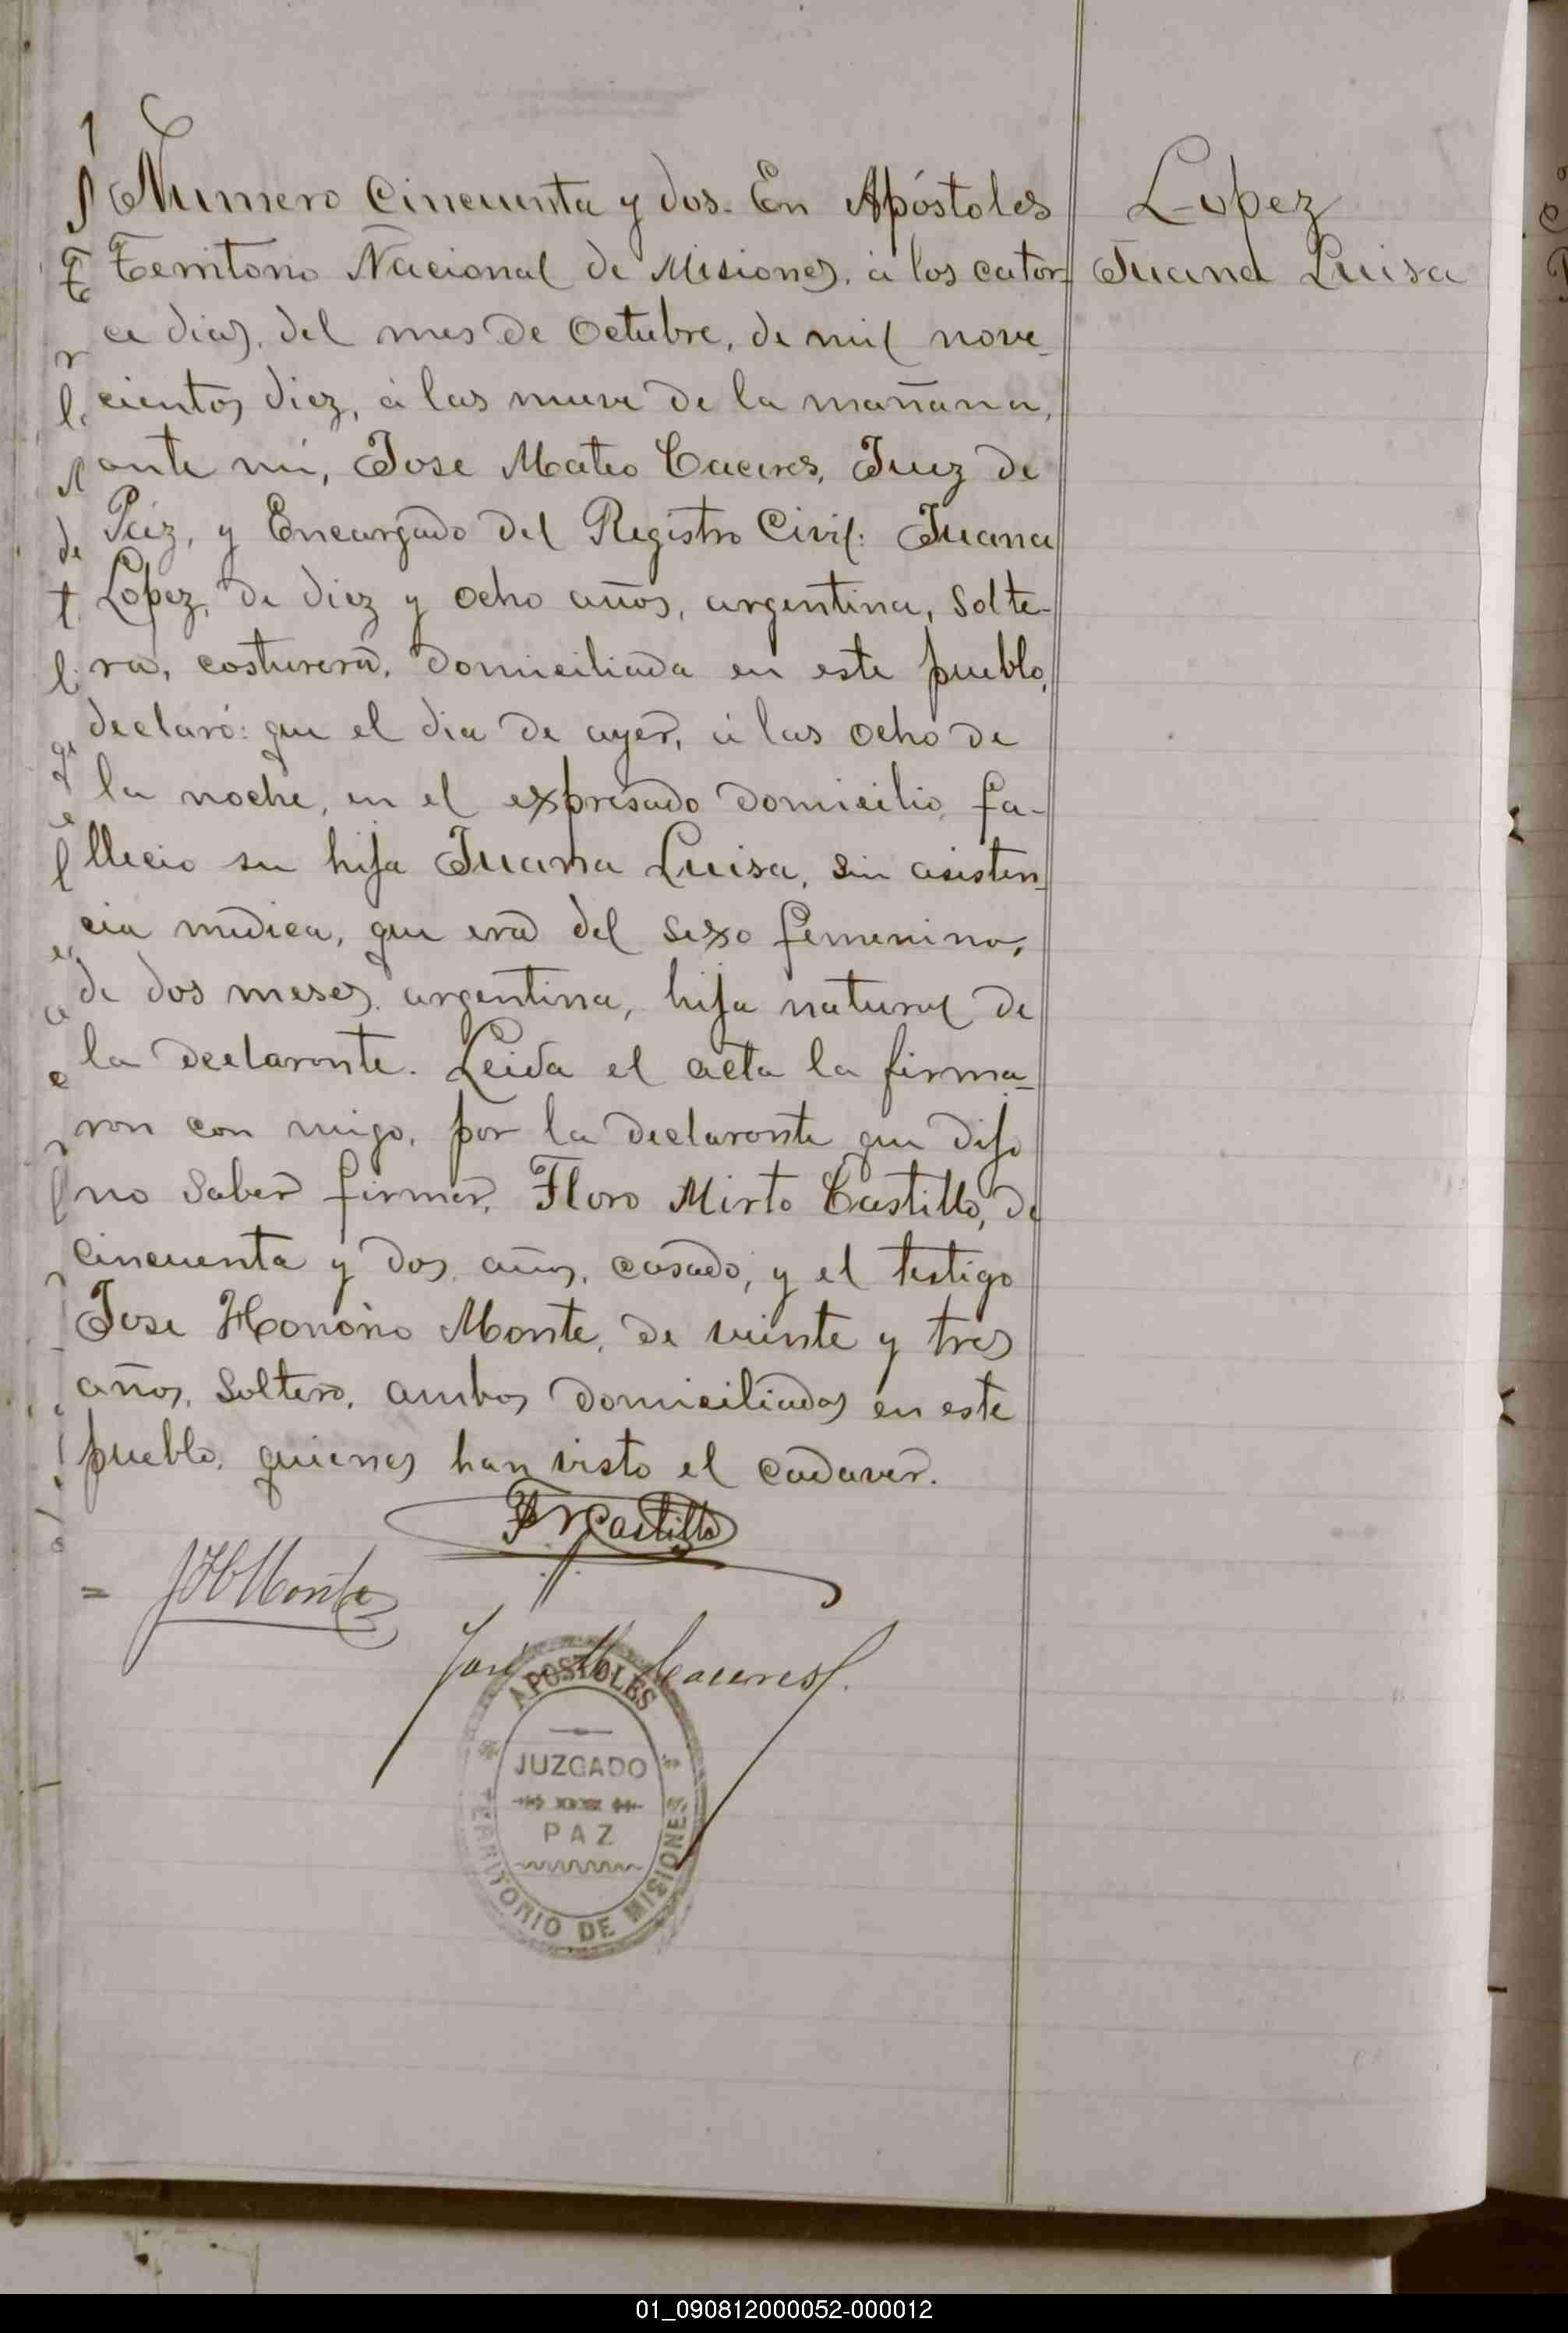 Numero Cincuenta y dos. En Apóstoles
Territorio Nacional de Misiones, á los cator-
ce dias, del mes de Octubre, de mil nove-
cientos diez, á las nueve de la mañana,
ante mí, Jose Mateo Caceres, Juez de
Paz, y Encargado del Registro Civil: Juana
Lopez, de diez y ocho años, argentina, solte-
ra, costurera, domiciliada en este pueblo,
declaró: que el dia de ayer, á las ocho de
la noche, en el expresado domicilio, fa-
llecio su hija Juana Luisa, sin asisten-
cia medica, que era del sexo femenino,
de dos meses, argentina, hija natural de
la declarante. Leida el acta la firma-
ron con migo, por la declarante que dijo
no saber firmar, Floro Mirto Castillo, de
cincuenta y dos años, casado, y el testigo
Jose Honorio Monte, de veinte y tres
años, soltero, ambos domiciliados en este
pueblo, quienes han visto el cadaver.
Lopez
Juana Luisa
Castillo
JHMonte
Jose M Caceres
APOSTOLES
JUZGADO
PAZ
TERRITORIO DE MISIONES
01_090812000052-000012